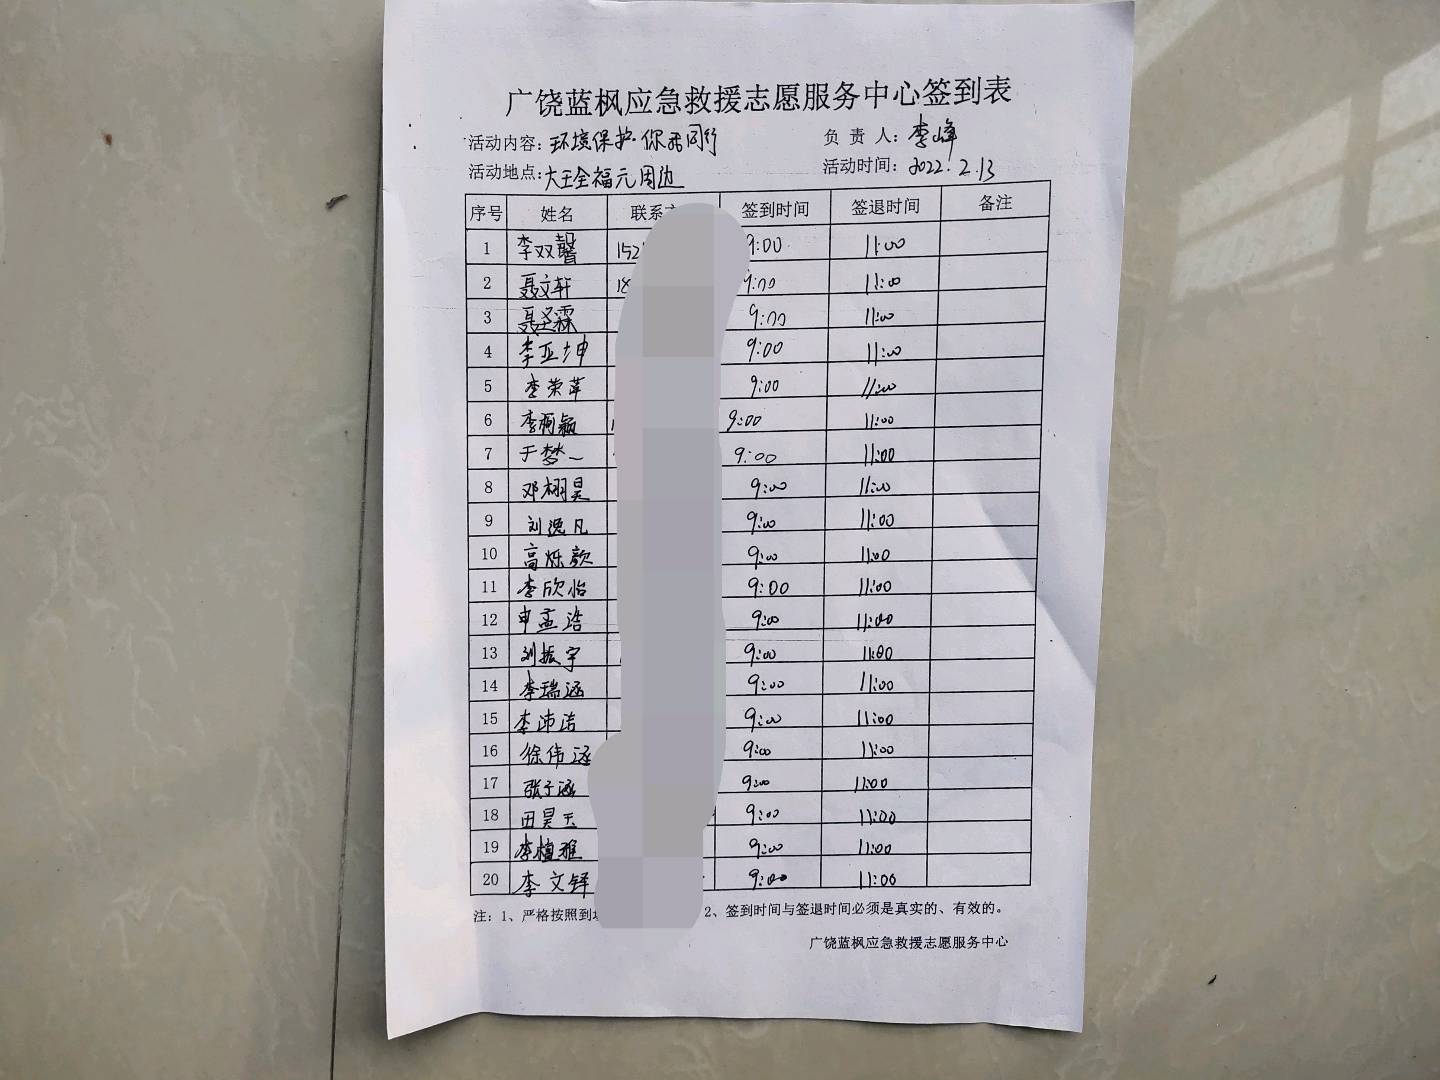 广饶蓝枫应急救援志愿服务中心签到表
活动内容: 环境保护·你我同行 负 责 人: 李峰
活动地点: 大王全福元周边 活动时间: 2022.2.13
序号 姓名 联系 签到时间 签退时间 备注
1 李双馨 152 9:00 11:00
2 聂文轩 18 9:00 11:00
3 聂圣霖 9:00 11:00
4 李亚坤 9:00 11:00
5 李荣萍 9:00 11:00
6 李 颖 9:00 11:00
7 于梦一 9:00 11:00
8 邓栩昊 9:00 11:00
9 刘逸凡 9:00 11:00
10 高烁颜 9:00 11:00
11 李欣怡 9:00 11:00
12 申孟浩 9:00 11:00
13 刘振宇 9:00 11:00
14 李瑞涵 9:00 11:00
15 李沛洁 9:00 11:00
16 徐伟涵 9:00 11:00
17 张子涵 9:00 11:00
18 田昊玉 9:00 11:00
19 李 雅 9:00 11:00
20 李文铎 9:00 11:00
注: 1、严格按照到 2、签到时间与签退时间必须是真实的、有效的。
广饶蓝枫应急救援志愿服务中心